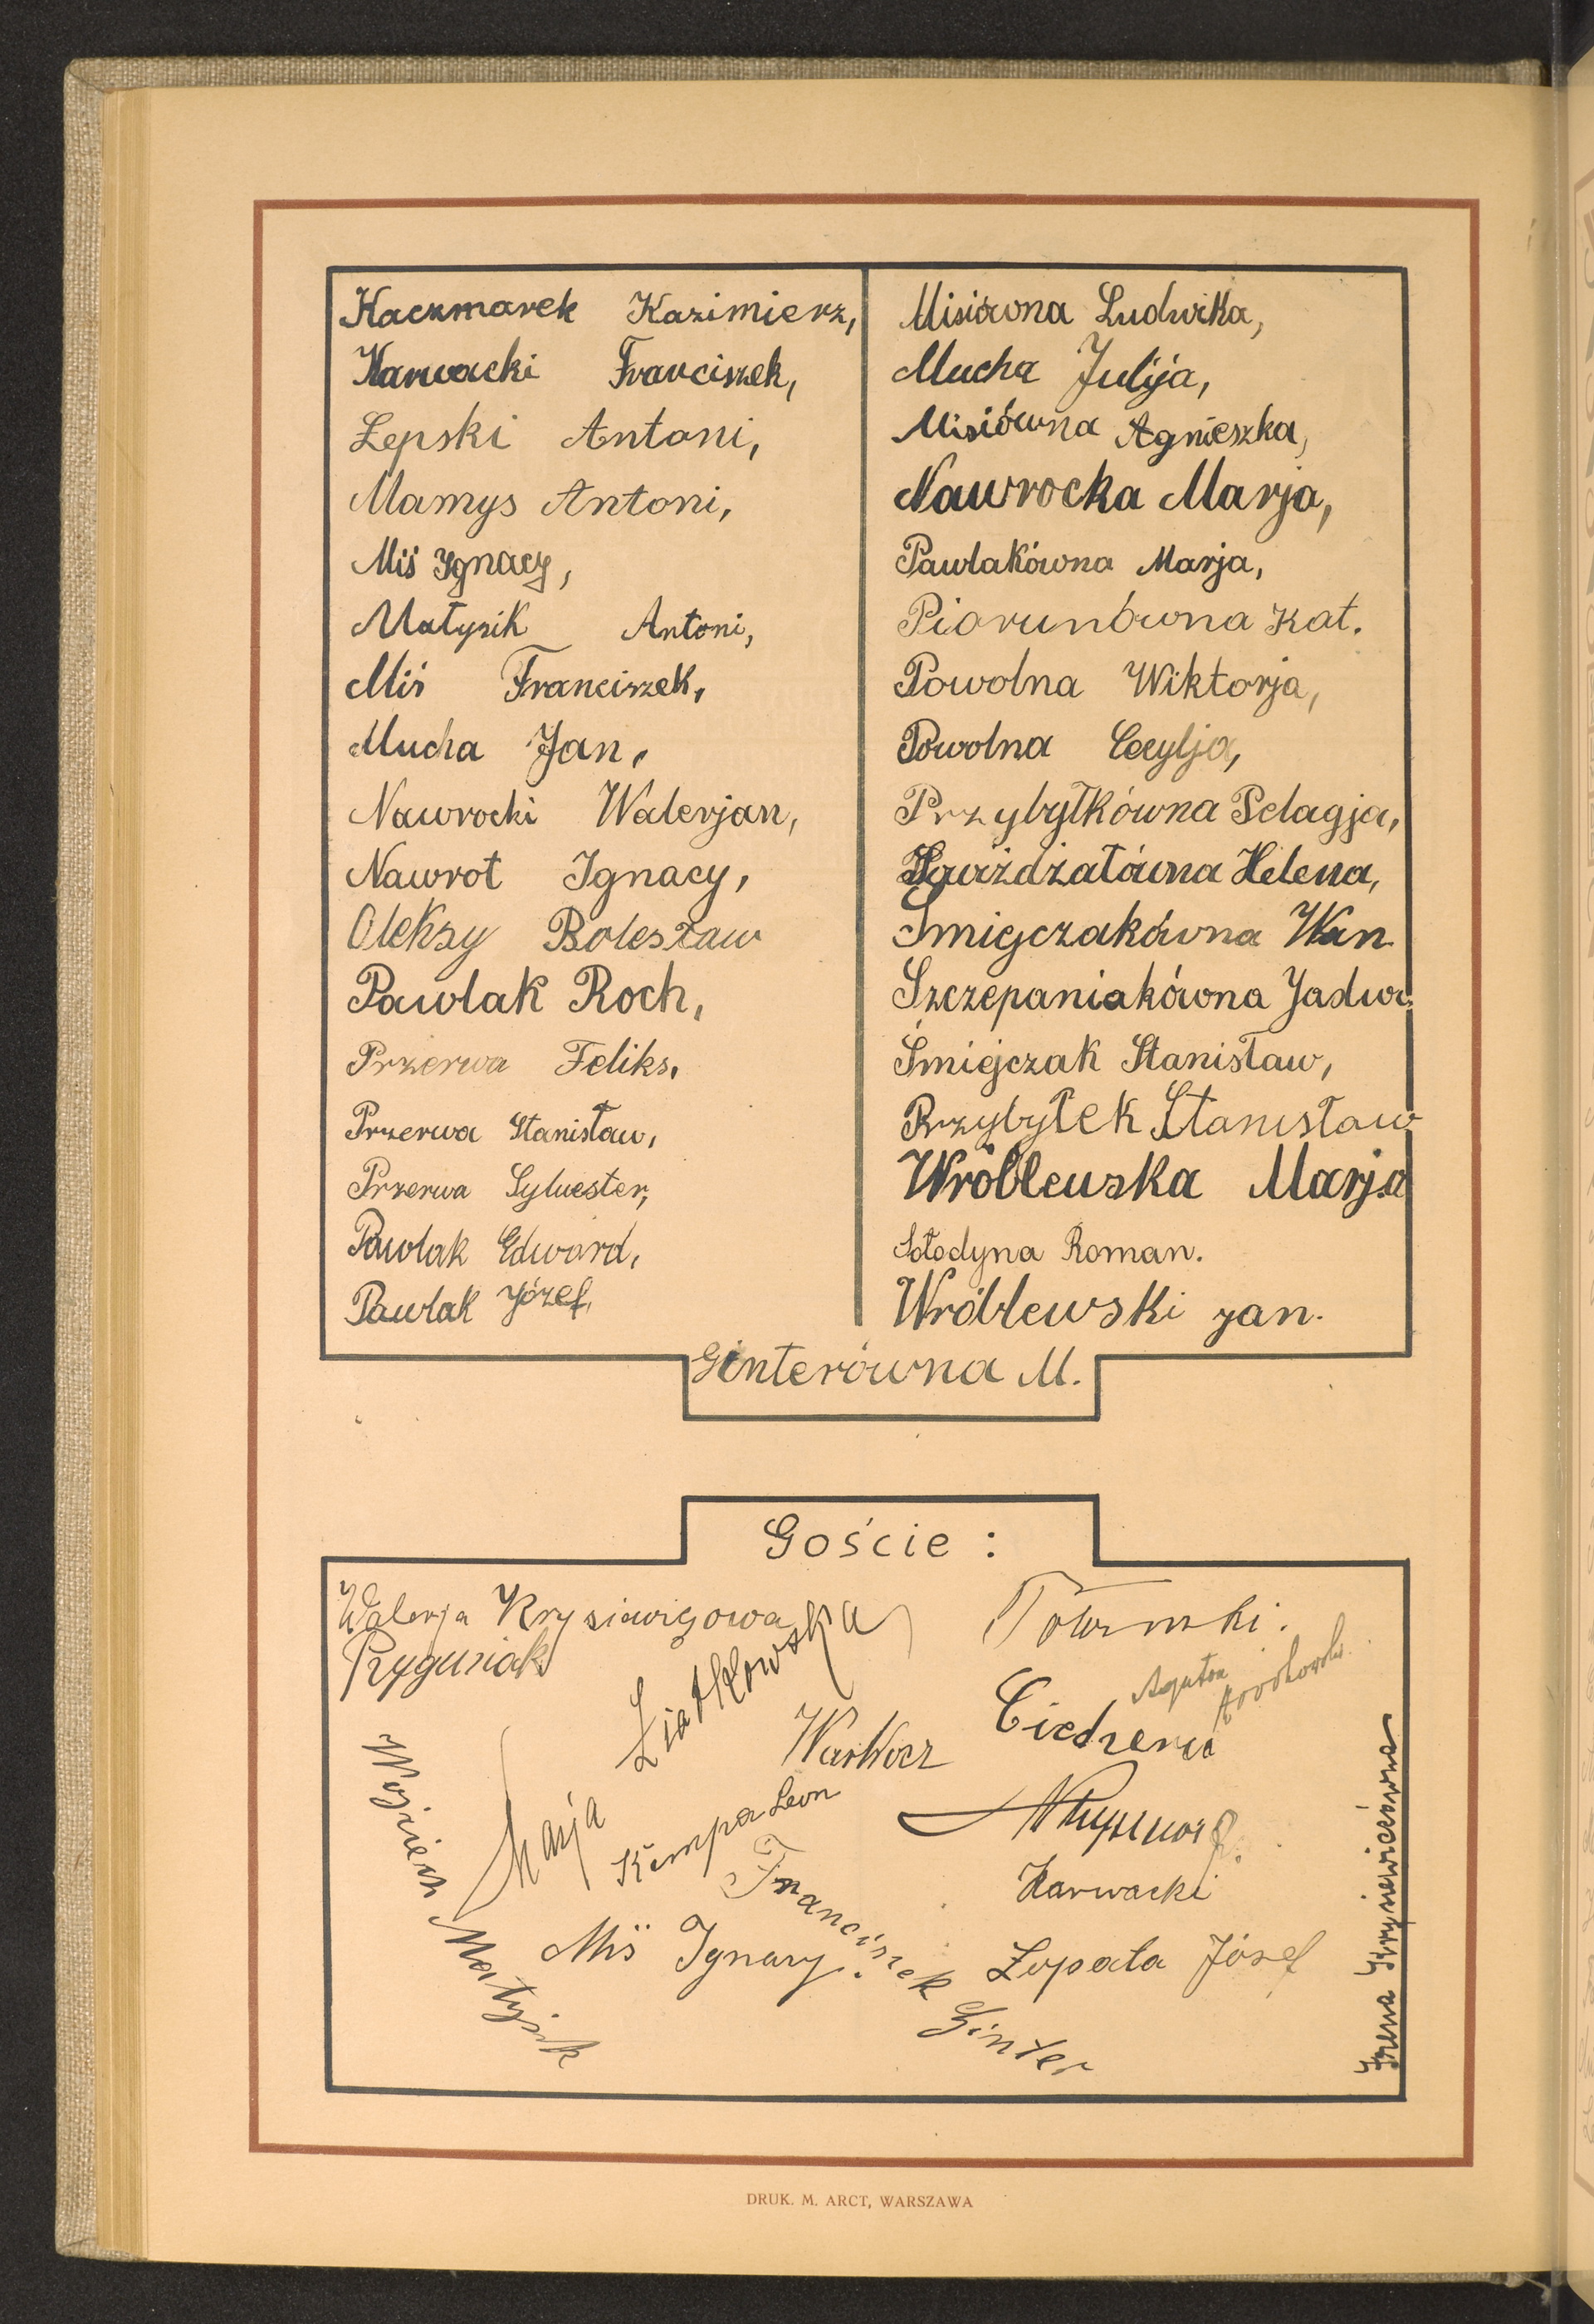 Kaczmarek Kazimierz,
Karwacki Franciszek,
Łepski Antoni,
Mamys Antoni,
Miś Ignacy,
Matysik Antoni,
Miś Franciszek,
Mucha Jan,
Nawrocki Walerjan,
Nawrot Ignacy,
Oleksy Bolesław
Pawlak Roch,
Przerwa Feliks,
Przerwa Stanisław,
Przerwa Sylwester,
Pawlak Edward,
Pawlak Józef,
Misiówna Ludwika,
Mucha Julija,
Misiówna Agnieszka,
Nawrocka Marja,
Pawlakówna Marja,
Piorunówna Kat.
Powolna Wiktorja,
Powolna Cecylja,
Przybyłkówna Pelagja,
Helena,
Śmiejczakówna Wan
Szczepaniakówna Jadw.
Śmiejczak Stanisław,
Przybyłek Stanisław
Wróblewska Marja
Sołodyna Roman.
Wróblewski Jan.
Ginterówna M.
Goście :
Walerja
Ryguniak
Marja Ziatkowska
Agata
Kempa Leon
Karwacki
Wojciech Matysik
Miś Ignacy.
Franciszek Ginter
Łopata Józef
Irena Krysiewiczówna
DRUK. M. ARCT, WARSZAWA